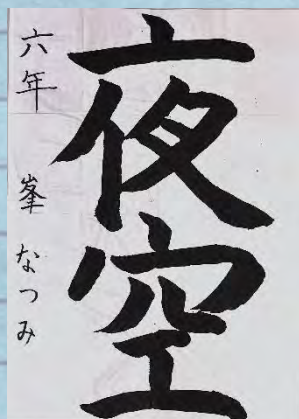 夜空
六年 峯 なつみ